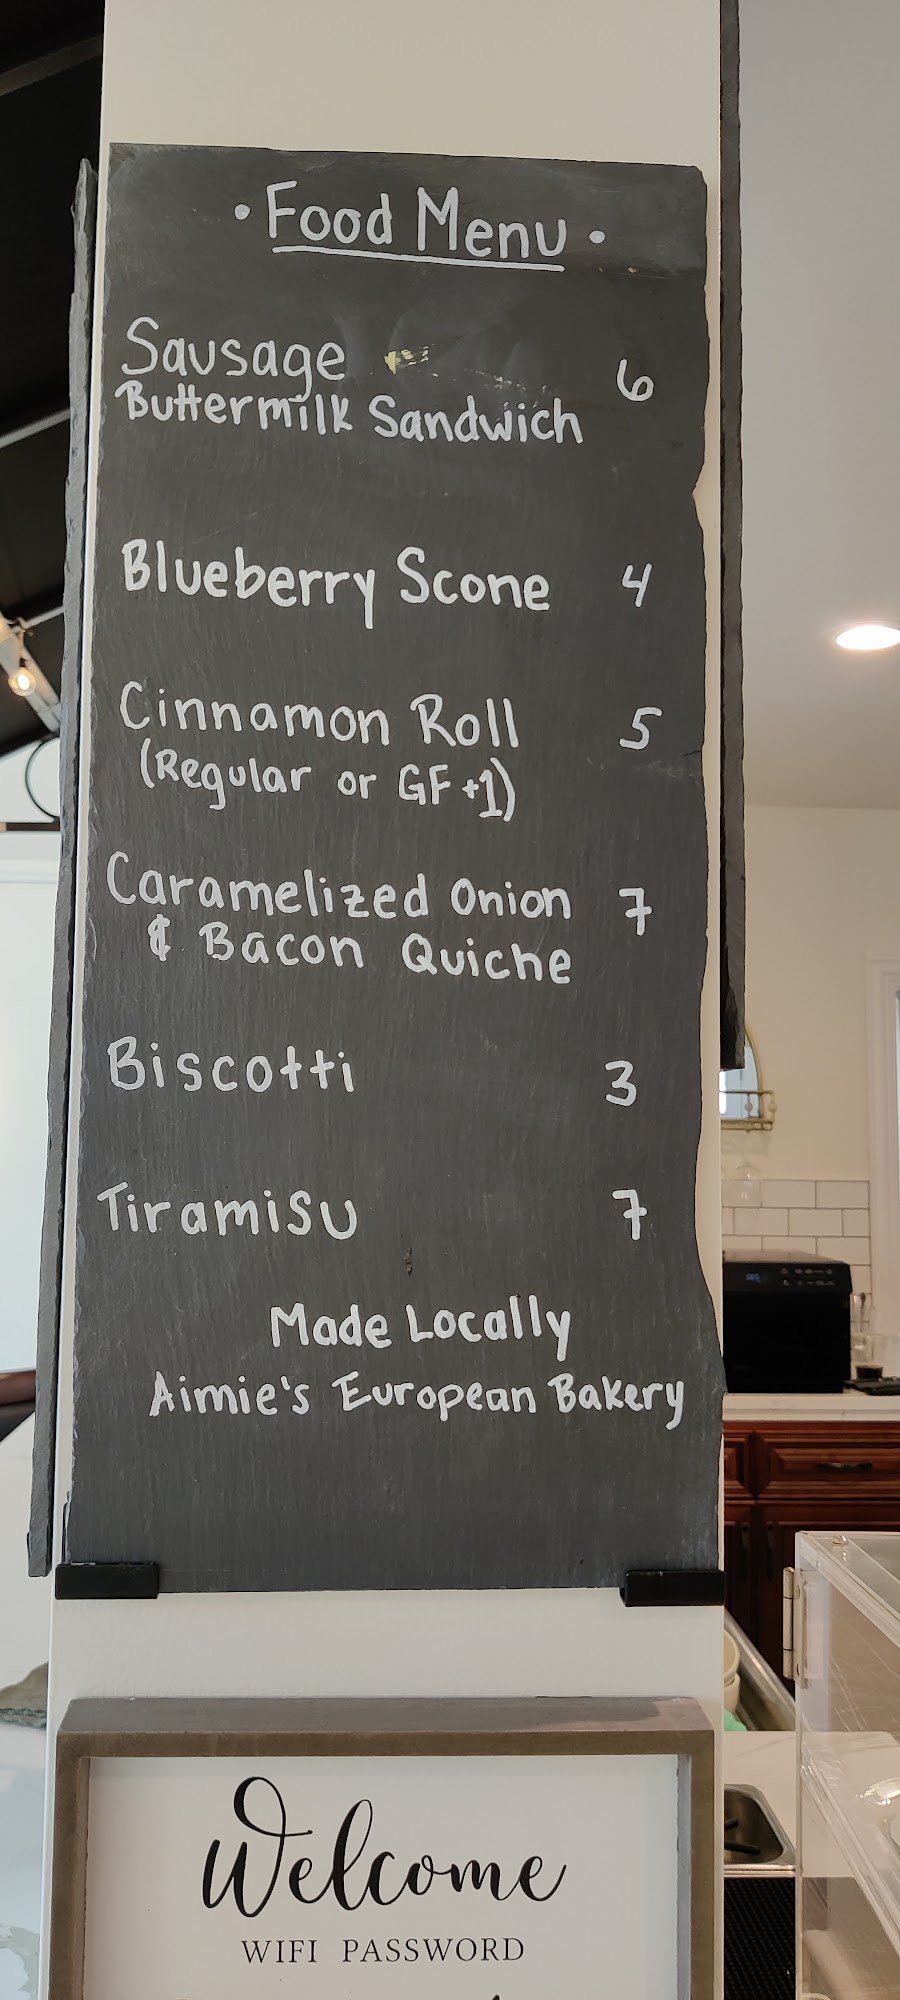 • Food Menu •
Sausage 6
Buttermilk Sandwich
Blueberry Scone 4
Cinnamon Roll 5
(Regular or GF +1)
Caramelized Onion 7
& Bacon Quiche
Biscotti 3
Tiramisu 7
Made Locally
Aimie's European Bakery
Welcome
WIFI PASSWORD